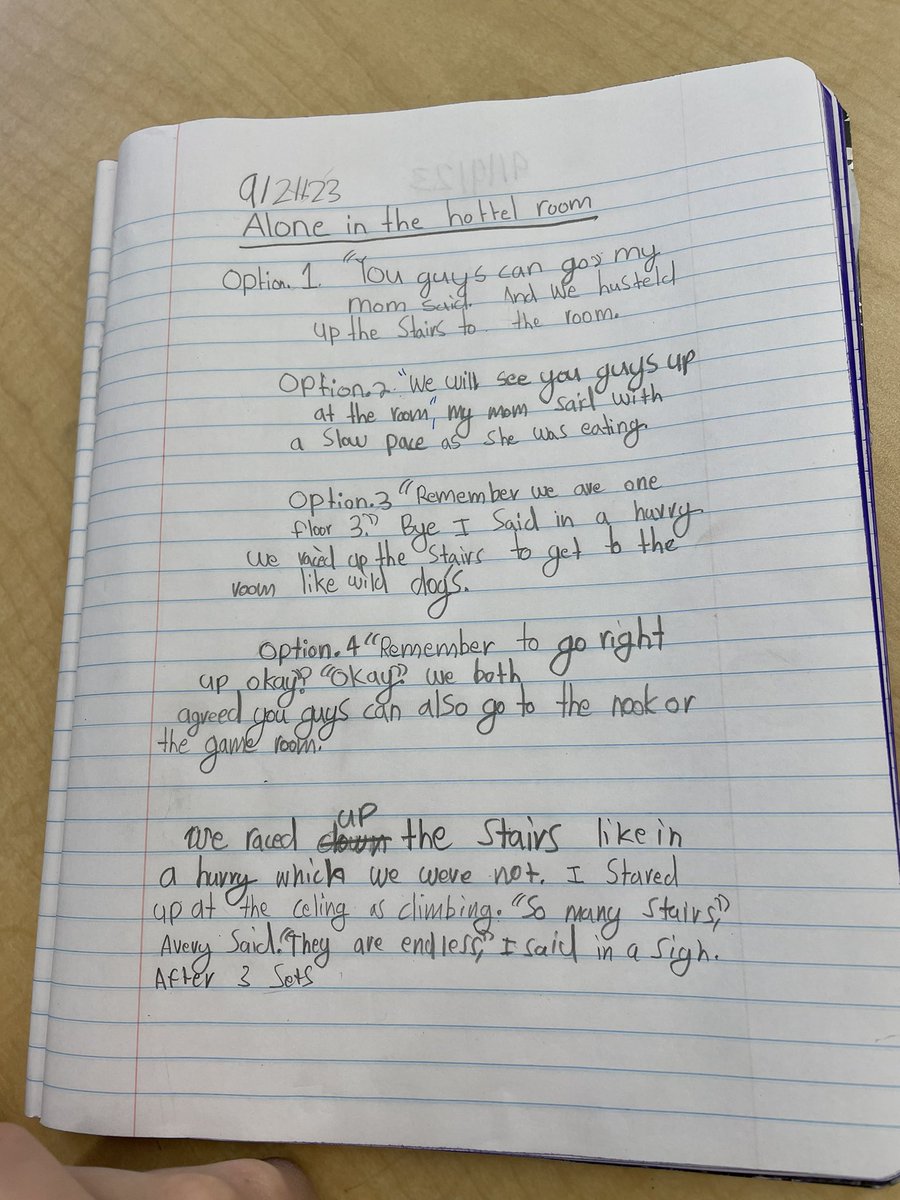 9/21/23
Alone in the hottel room
Option. 1. "You guys can go" my
mom said. And we husteld
up the Stairs to the room.
Option.2 "We will see you guys up
at the room", my mom said with
a Slow pace as she was eating.
Option.3 "Remember we are one
floor 3." Bye I Said in a hurry
we raced up the Stairs to get to the
room like wild dogs.
Option.4 "Remember to go right
up okay?" "Okay" we both
agreed you guys can also go to the nook or
the game room.
up
We raced down the Stairs like in
a hurry which we were not. I Stared
up at the celing as climbing. "So many Stairs,"
Avery Said. "They are endless," I said in a sigh.
After 3 Sets